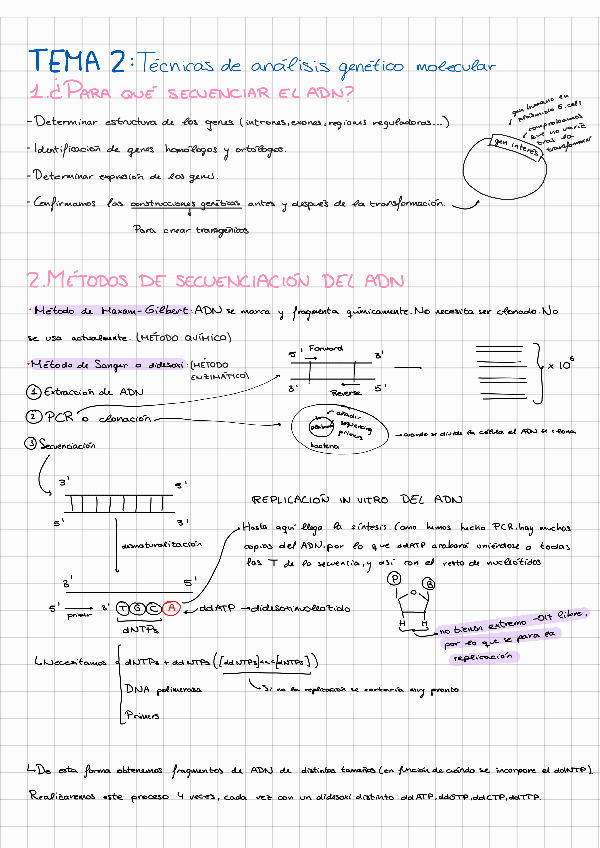 TEMA 2: Técnicas de análisis genético molecular
1.¿PARA QUÉ SECUENCIAR EL ADN?
- Determinar estructura de los genes (intrones, exones, regiones reguladoras...)
- Identificación de genes homólogos y ortólogos.
- Determinar expresión de los genes.
- Confirmamos las construcciones genéticas antes y después de la transformación.
Para crear transgénicos
gen humano en
plásmido E.coli
comprobamos
que no varíe
tras la
transformación
gen interés
2.MÉTODOS DE SECUENCIACIÓN DEL ADN
- Método de Maxam-Gilbert: ADN se marca y fragmenta químicamente. No necesita ser clonado. No
se usa actualmente. (MÉTODO QUÍMICO)
- Método de Sanger o didesoxi: (MÉTODO
ENZIMÁTICO)
5' Forward 3'
3' Reverse 5'
x 10⁶
① Extracción de ADN
② PCR o clonación
③ Secuenciación
plásmido
añadir
sequencing
primers
bacteria
→ cuando se divide la célula el ADN se clona
3' 5'
5' 3'
desnaturalización
3' 5'
5' primer 3' T G C A ddATP → didesoxinucleótido
dNTPs
REPLICACIÓN IN VITRO DEL ADN
Hasta aquí llega la síntesis. Como hemos hecho PCR, hay muchas
copias del ADN, por lo que ddATP acabará uniéndose a todas
las T de la secuencia, y así con el resto de nucleótidos
P O B
H H
no tienen extremo -OH libre,
por lo que se para la
replicación
↳ Necesitamos
dNTPs + ddNTPs ([ddNTPs]<<<[dNTPs])
Si no la replicación se cortaría muy pronto
DNA polimerasa
Primers
↳ De esta forma obtenemos fragmentos de ADN de distintos tamaños (en función de cuándo se incorpore el ddNTP).
Realizaremos este proceso 4 veces, cada vez con un didesoxi distinto ddATP, ddGTP, ddCTP, ddTTP.